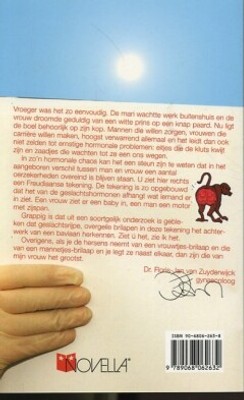 Vroeger was het zo eenvoudig. De man wachtte werk buitenshuis en de
vrouw droomde geduldig van een witte prins op een knap paard. Nu ligt
de boel behoorlijk op zijn kop. Mannen die willen zorgen, vrouwen die
carrière willen maken, hoogst verwarrend allemaal en het leidt dan ook
niet zelden tot ernstige hormonale problemen: eitjes die de kluts kwijt
zijn en zaadjes die wachten tot ze een ons wegen.
In zo'n hormonale chaos kan het een steun zijn te weten dat in het
aangeboren verschil tussen man en vrouw een aantal
oerzekerheden overeind is blijven staan. U ziet hier rechts
een Freudiaanse tekening. De tekening is zo opgebouwd
dat het van de geslachtshormonen afhangt wat iemand er
in ziet. Een vrouw ziet er een baby in, een man een motor
met zijspan.
Grappig is dat uit een soortgelijk onderzoek is geble-
ken dat geslachtsrijpe, overgele brilapen in deze tekening het achter-
werk van een baviaan herkennen. Ziet u het, zie ik het.
Overigens, als je de hersens neemt van een vrouwtjes-brilaap en die
van een mannetjes-brilaap en je legt ze naast elkaar, dan zijn die van
mijn vrouw het grootst.
Dr. Floris-Jan van Zuyderwijck
gynaecoloog
NOVELLA
ISBN 90-6806-263-8
9789068062632